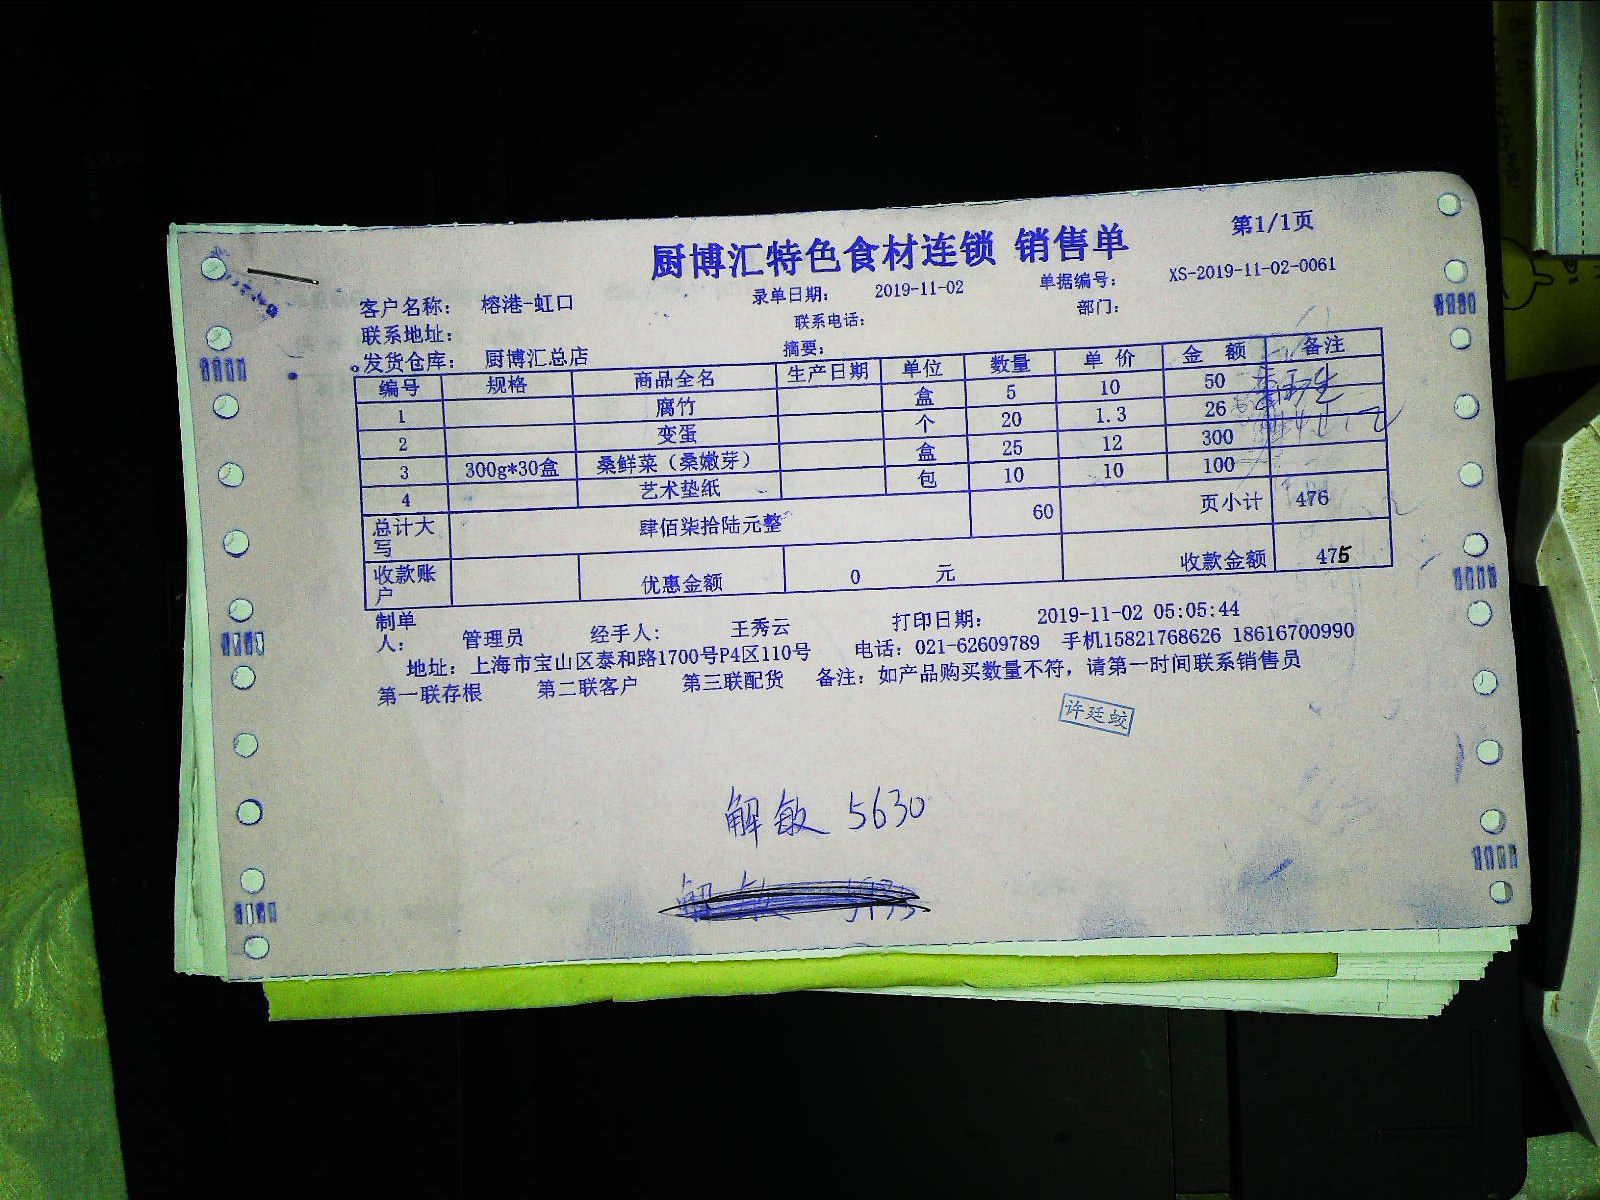 第1/1页
厨博汇特色食材连锁 销售单
客户名称： 榕港-虹口 录单日期： 2019-11-02 单据编号： XS-2019-11-02-0061
联系地址： 联系电话： 部门：
发货仓库： 厨博汇总店 摘要：
编号 规格 商品全名 生产日期 单位 数量 单 价 金 额 备注
1 腐竹 盒 5 10 50
2 变蛋 个 20 1.3 26
3 300g*30盒 桑鲜菜（桑嫩芽） 盒 25 12 300
4 艺术垫纸 包 10 10 100
总计大写 肆佰柒拾陆元整 60 页小计 476
收款账户 优惠金额 0 元 收款金额 475
制单人： 管理员 经手人： 王秀云 打印日期： 2019-11-02 05:05:44
地址：上海市宝山区泰和路1700号P4区110号 电话：021-62609789 手机15821768626 18616700990
第一联存根 第二联客户 第三联配货 备注：如产品购买数量不符，请第一时间联系销售员
许廷蛟
解敏 5630